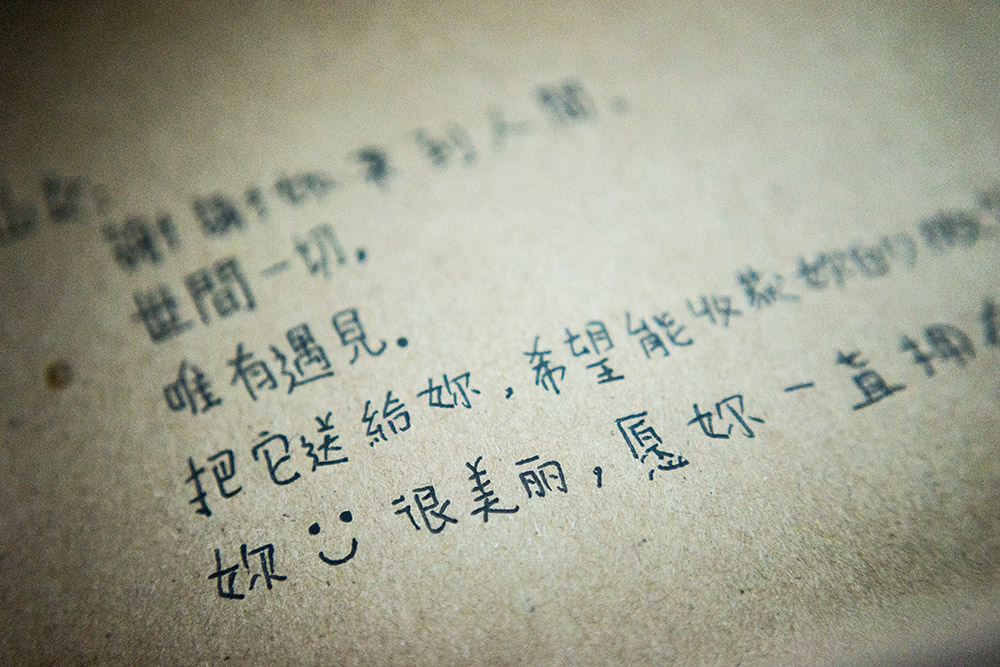 謝謝妳来到人間。
世間一切.
唯有遇見.
把它送給妳,希望能收获妳的
妳 很美丽,愿妳一直拥有